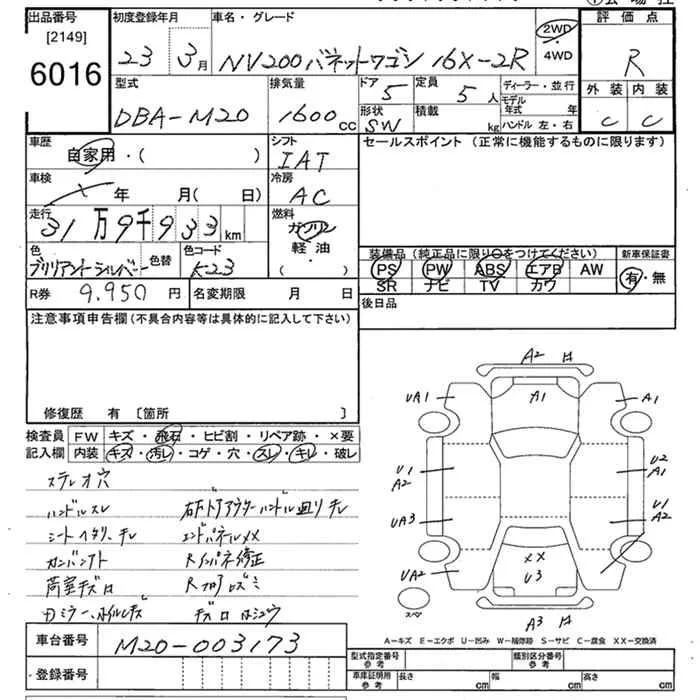 出品番号 初度登録年月 車名・グレード 評価点
[2149]
6016 23 3月 NV200バネットワゴン 16X-2R 2WD・4WD R
型式 排気量 ドア 定員 ディーラー・並行 外装 内装
DBA-M20 1600cc 5 5人 モデル年式 年 C C
形状 積載 ハンドル 左・右
SW kg
車歴 シフト セールスポイント (正常に機能するものに限ります)
自家用・( ) IAT
車検 冷房
年 月(日) AC
走行 燃料
31万9千933km ガソリン
軽・油
( )
色 色替 色コード 装備品 (純正品に限り○をつけてください) 新車保証書
ブリリアントシルバー K23 PS PW ABS エアB AW 有・無
SR ナビ TV カワ
R券 9.950円 名変期限 月 日 後日品
注意事項申告欄 (不具合内容等は具体的に記入して下さい)
修復歴 有 [箇所 ]
検査員記入欄 FW キズ・飛石・ヒビ割・リペア跡・×要
内装 キズ・汚レ・コゲ・穴・スレ・キレ・破レ
ステレオ穴
ハンドルスレ
シートヘタリ、キレ エンドパネルXX
Rインパネ修正
荷室キズロ
A2
UA1 A1 A1
U1 A2 U2 A1
UA3 U1 A2
UA2 XX U3
スペア A3
A-キズ E-エクボ U-凹み W-補修跡 S-サビ C-腐食 XX-交換済
車台番号 M20-003173
登録番号
型式指定番号 参考 類別区分番号 参考
車庫証明用 参考 長さ cm 幅 cm 高さ cm